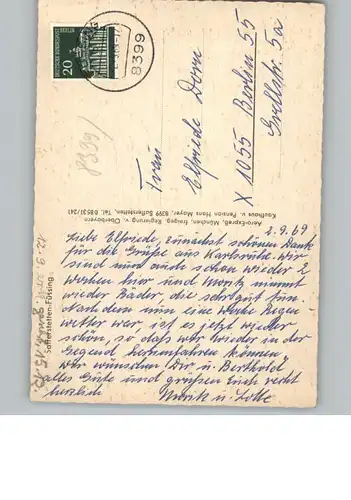 DEUTSCHE BUNDESPOST
BERLIN
20
8399
8399/
Frau
Elfriede Dorn
X 1055 Berlin 55
Grellstr. 5a
Aero-Expreß, München, freigeg. Regierung v. Oberbayern
Kaufhaus u. Pension Hans Mayer, 8399 Safferstetten, Tel. 08531/241
Safferstetten-Füssing
2.9.69
Liebe Elfriede, zunächst schönen Dank
für die Grüße aus Karlsruhe. Wir
sind nun auch schon wieder 2
Wochen hier und Moritz nimmt
wieder Bäder, die sehr gut tun.
Nachdem nun eine Woche Regen
wetter war, ist es jetzt wieder
schön, so daß wir wieder in der
Gegend herumfahren können.
Wir wünschen Dir u. Berthold
alles Gute und grüßen Euch recht
herzlich
u. Lotte